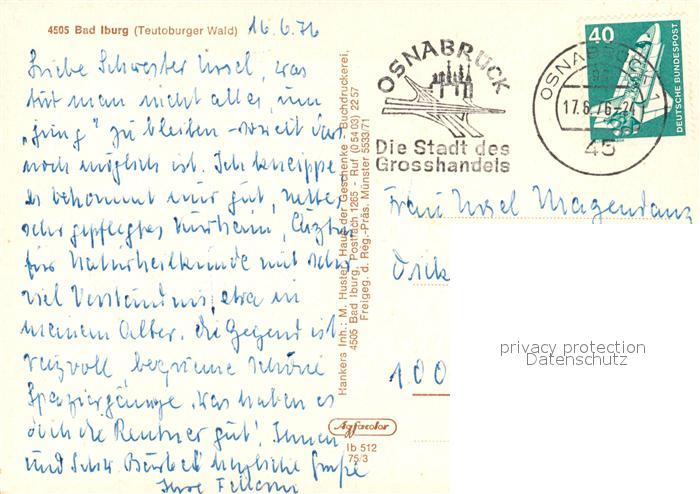 4505 Bad Iburg (Teutoburger Wald)
16.6.76
Liebe Schwester Ursel, was
tut man nicht alles, um
„jung" zu bleiben - soweit das
noch möglich ist. Ich kneippe
es bekommt mir gut, nettes
sehr gepflegtes Kurheim,
für Naturheilkunde mit sehr
viel Verständnis, etwa in
meinem Alter. Die Gegend ist
reizvoll, bequeme schöne
Spaziergänge. Was haben es
doch die Rentner gut! Ihnen
und Schw. Bärbel herzliche Grüße
Ihre
Hankers Inh.: M. Huster, Haus der Geschenke - Buchdruckerei,
4505 Bad Iburg, Postfach 1265 - Ruf (0 54 03) 22 57
Freigeg. d. Reg.-Präs. Münster 5533/71
Agfacolor
Ib 512
75/3
OSNABRÜCK
Die Stadt des
Grosshandels
OSNABRÜCK
17.6.76-24
45
40
DEUTSCHE BUNDESPOST
Frau Ursel Magendanz
100
privacy protection
Datenschutz